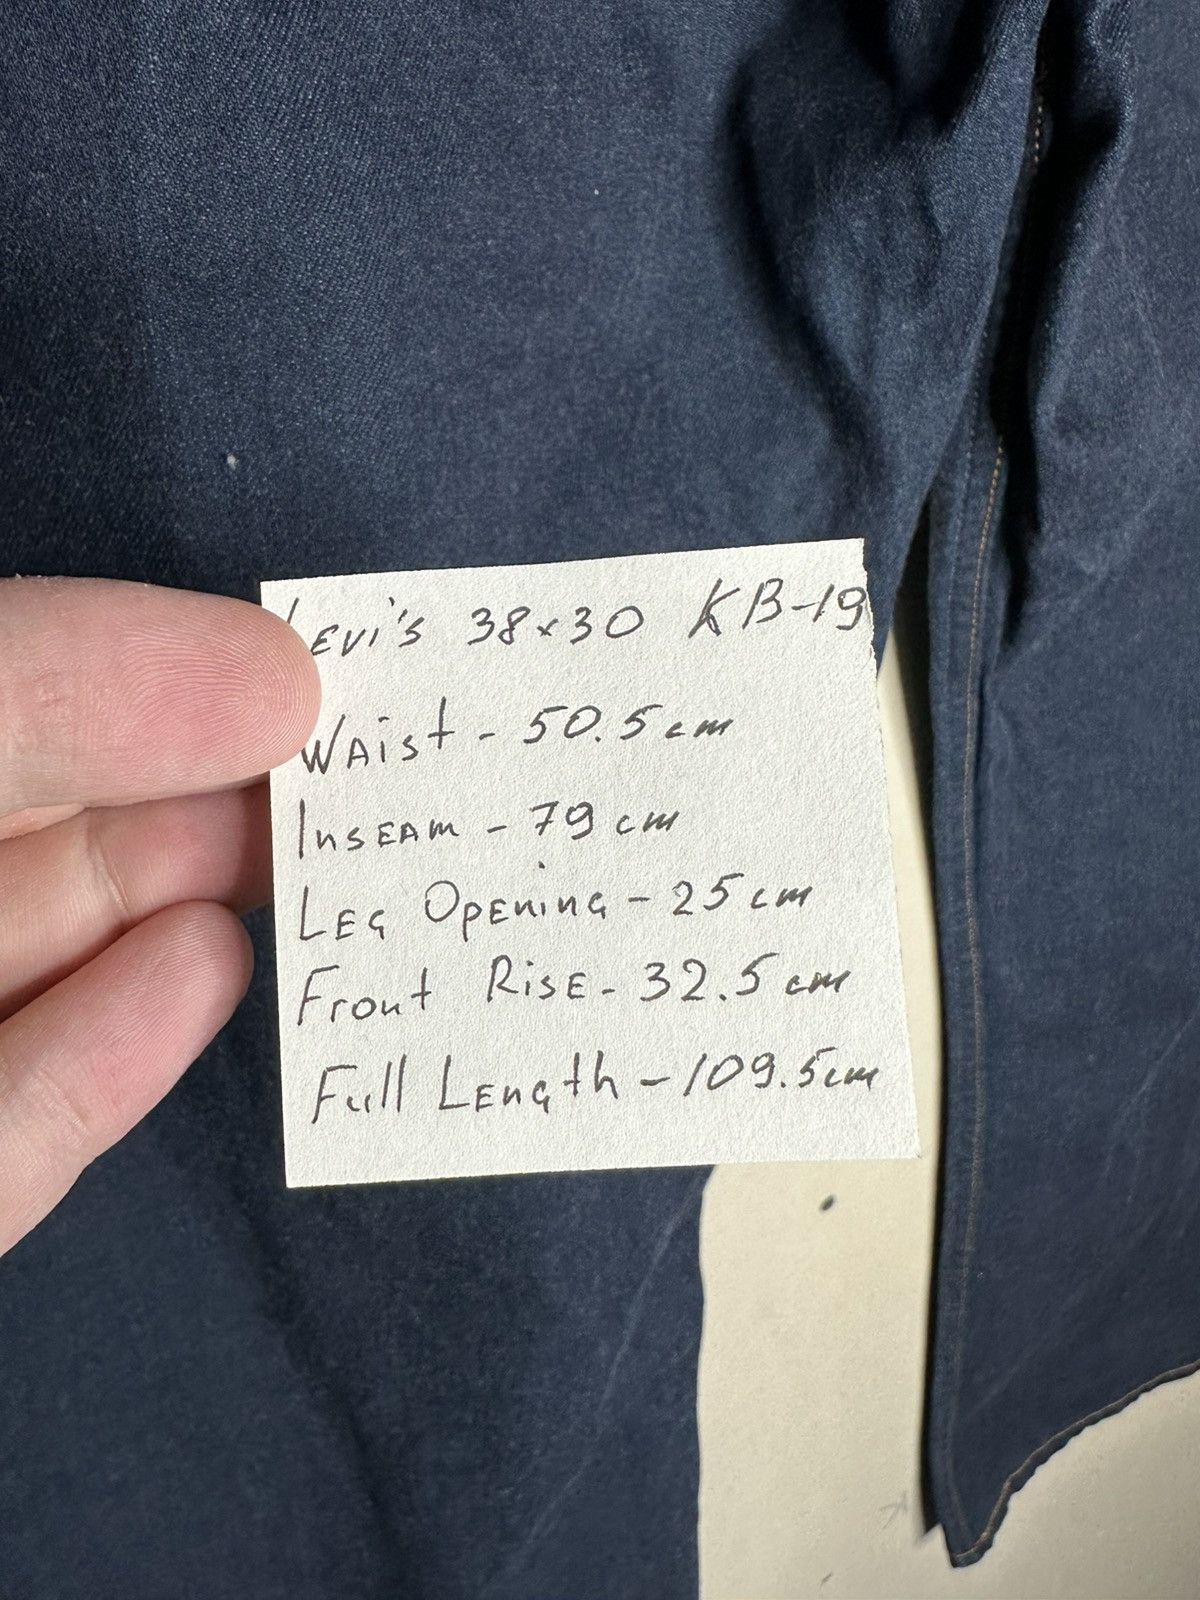 Levi's 38x30 KB-19
Waist - 50.5 cm
Inseam - 79 cm
Leg Opening - 25 cm
Front Rise - 32.5 cm
Full Length - 109.5 cm